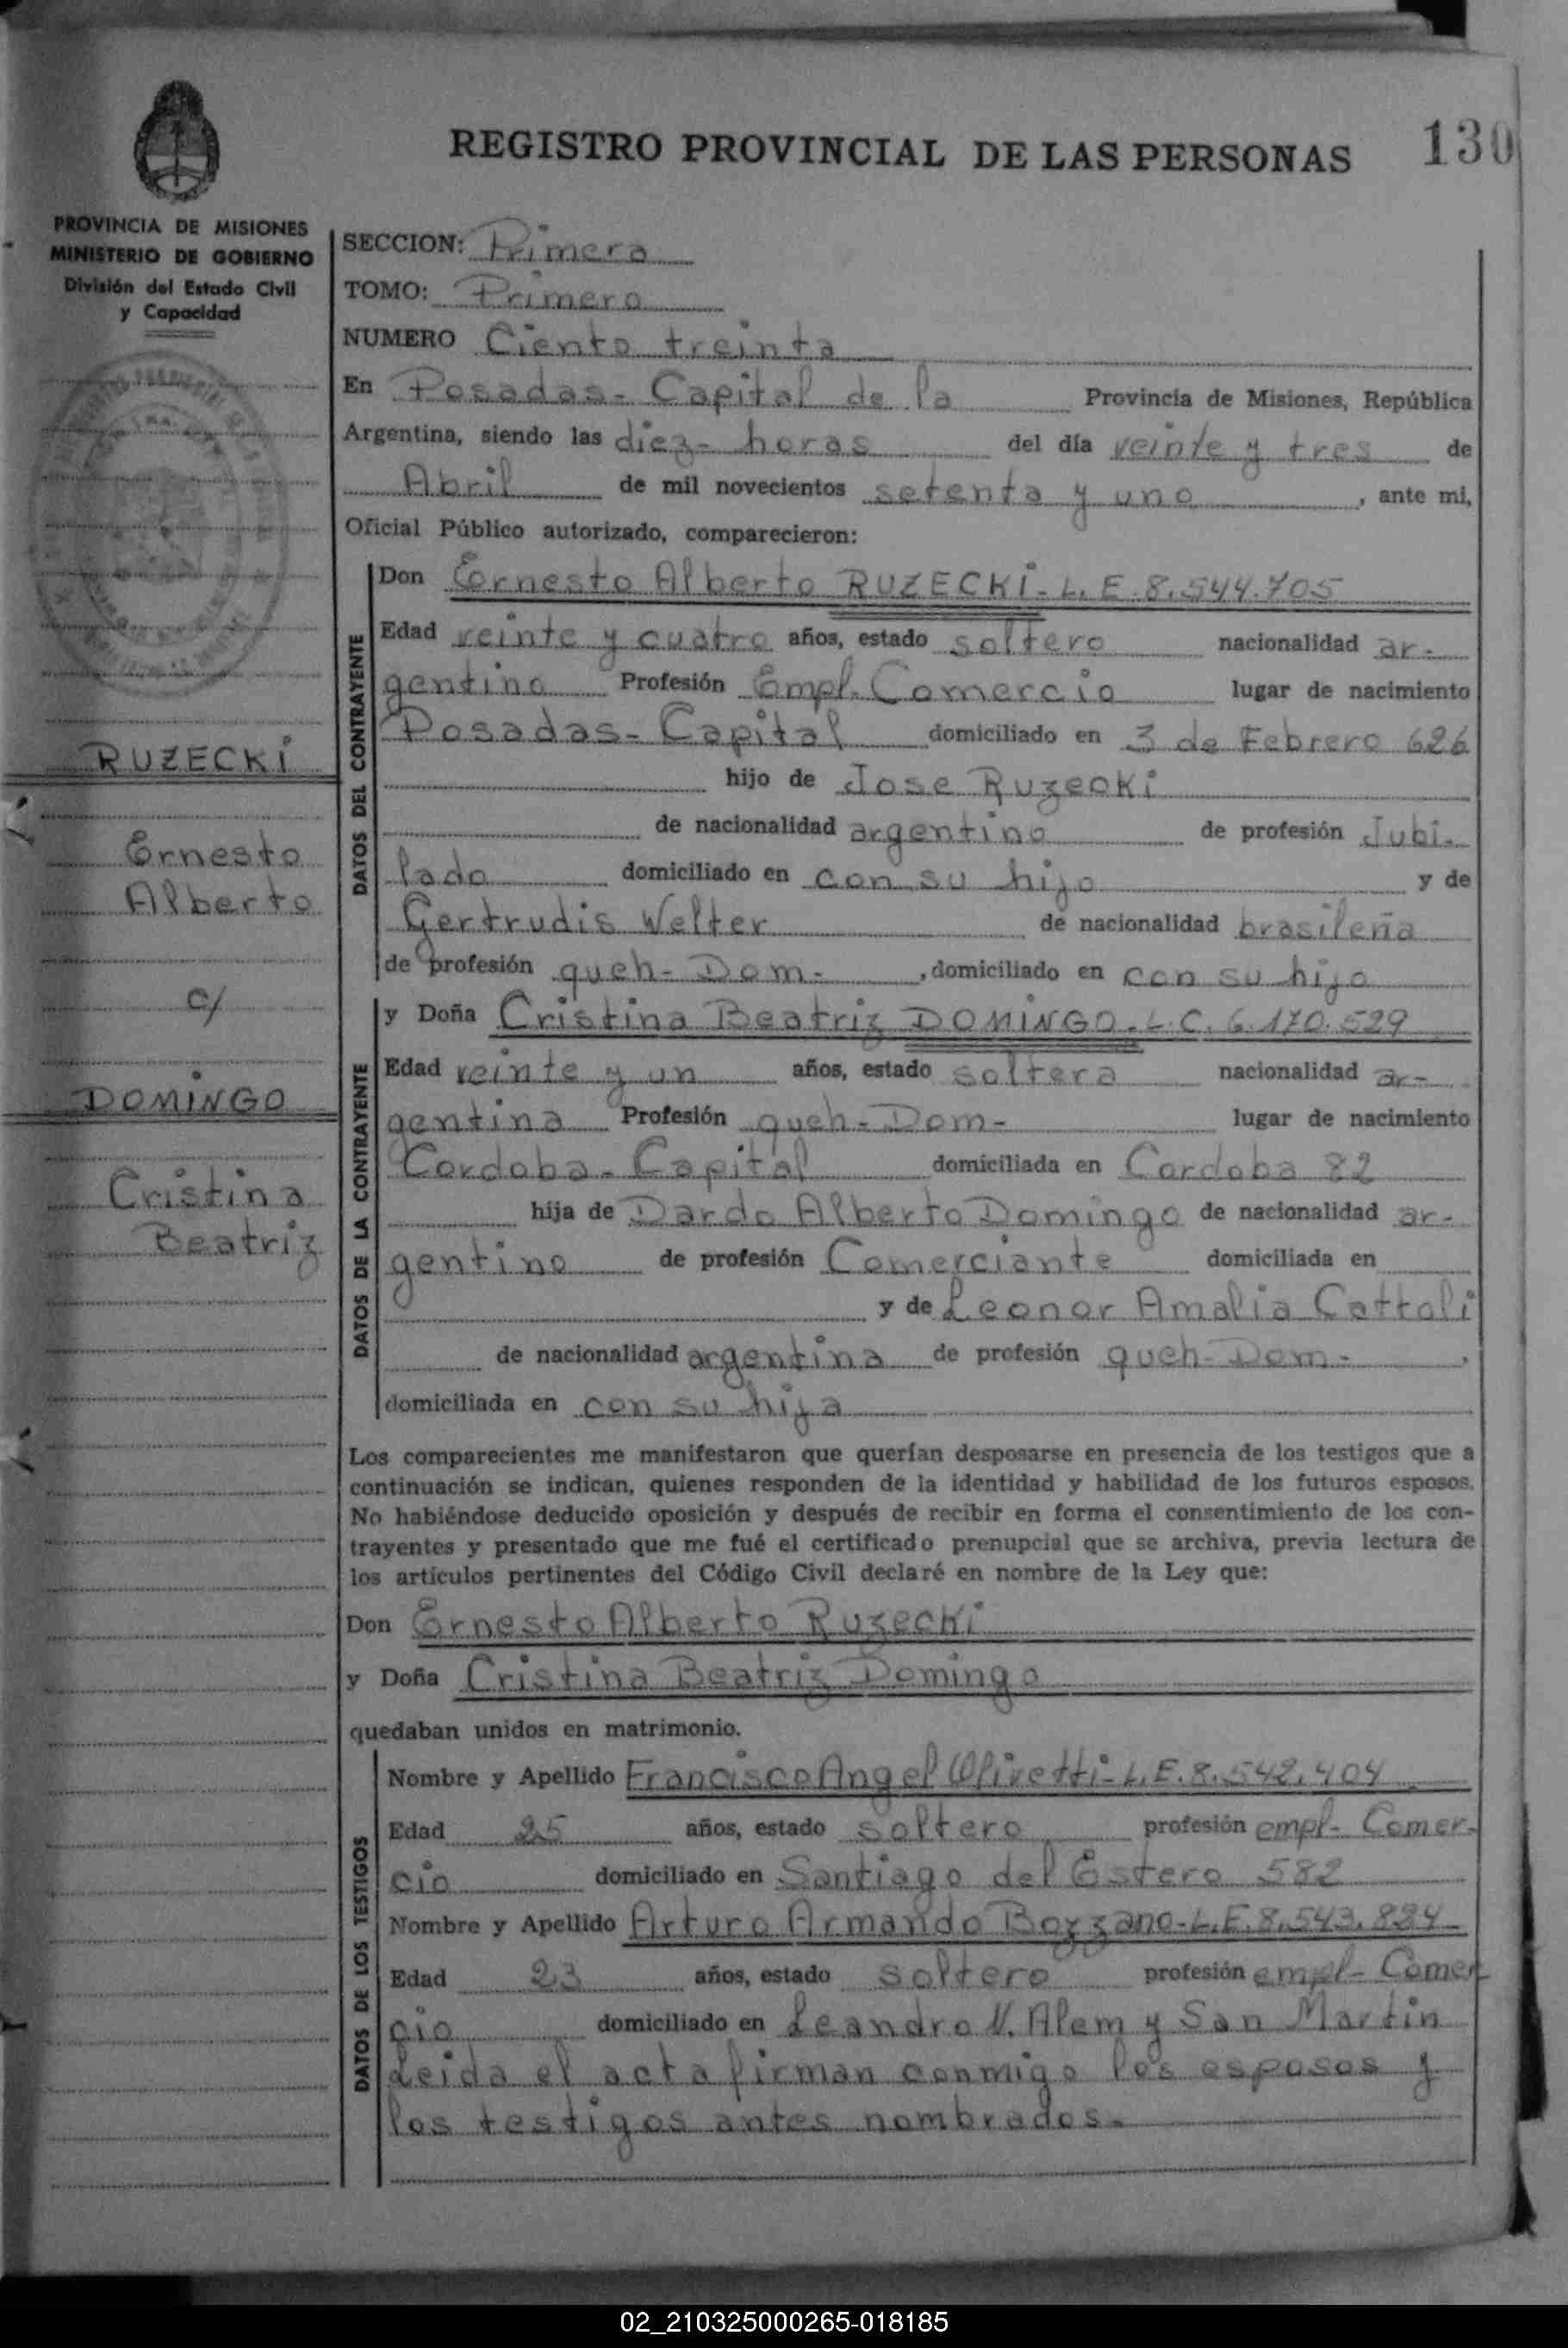 REGISTRO PROVINCIAL DE LAS PERSONAS 130
PROVINCIA DE MISIONES
MINISTERIO DE GOBIERNO
División del Estado Civil
y Capacidad
RUZECKI
Ernesto
Alberto
c/
DOMINGO
Cristina
Beatriz
SECCION: Primera
TOMO: Primero
NUMERO Ciento treinta
En Posadas- Capital de la Provincia de Misiones, República
Argentina, siendo las diez- horas del día veinte y tres de
Abril de mil novecientos setenta y uno, ante mi,
Oficial Público autorizado, comparecieron:
DATOS DEL CONTRAYENTE
Don Ernesto Alberto RUZECKI- L. E. 8.544.705
Edad veinte y cuatro años, estado soltero nacionalidad ar-
gentino Profesión Empl. Comercio lugar de nacimiento
Posadas- Capital domiciliado en 3 de Febrero 626
hijo de Jose Ruzecki
de nacionalidad argentino de profesión Jubi-
lado domiciliado en con su hijo y de
Gertrudis Welter de nacionalidad brasileña
de profesión queh- Dom-, domiciliado en con su hijo
DATOS DE LA CONTRAYENTE
y Doña Cristina Beatriz DOMINGO- L.C. 6.170.529
Edad veinte y un años, estado soltera nacionalidad ar-
gentina Profesión queh- Dom- lugar de nacimiento
Cordoba- Capital domiciliada en Cordoba 82
hija de Dardo Alberto Domingo de nacionalidad ar-
gentino de profesión Comerciante domiciliada en
y de Leonor Amalia Cattoli
de nacionalidad argentina de profesión queh- Dom-,
domiciliada en con su hija
Los comparecientes me manifestaron que querían desposarse en presencia de los testigos que a
continuación se indican, quienes responden de la identidad y habilidad de los futuros esposos.
No habiéndose deducido oposición y después de recibir en forma el consentimiento de los con-
trayentes y presentado que me fué el certificado prenupcial que se archiva, previa lectura de
los artículos pertinentes del Código Civil declaré en nombre de la Ley que:
Don Ernesto Alberto Ruzecki
y Doña Cristina Beatriz Domingo
quedaban unidos en matrimonio.
DATOS DE LOS TESTIGOS
Nombre y Apellido Francisco Angel Olivetti- L.E. 8.542.404
Edad 25 años, estado soltero profesión empl- Comer-
cio domiciliado en Santiago del Estero 582
Nombre y Apellido Arturo Armando Bozzano- L.E. 8.543.824
Edad 23 años, estado soltero profesión empl- Comer
cio domiciliado en Leandro N. Alem y San Martin
Leida el acta firman conmigo los esposos y
los testigos antes nombrados-
02_210325000265-018185